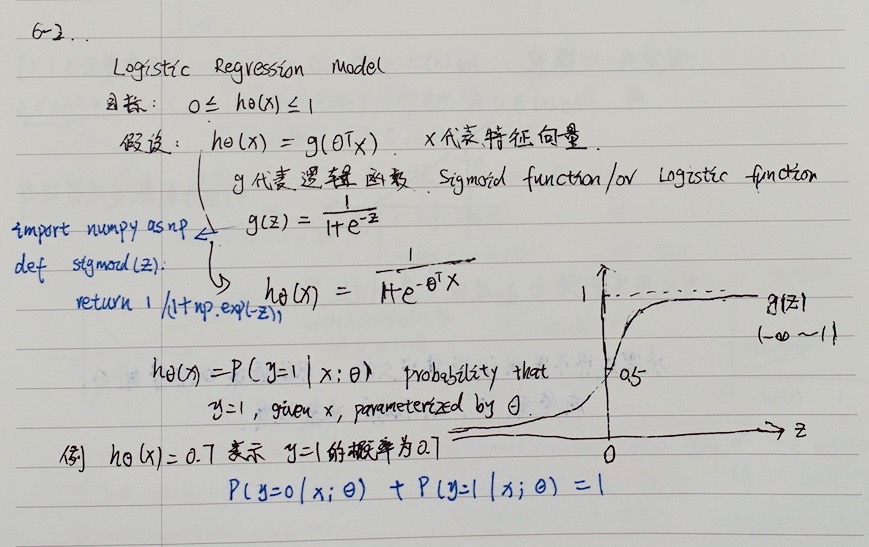 6-2...
Logistic Regression Model
目标: 0 ≤ hθ(x) ≤ 1
假设: hθ(x) = g(θᵀx). x代表特征向量.
g代表逻辑函数. Sigmoid function/or Logistic function
g(z) = 1/(1+e^-z)
import numpy as np
def sigmoid(z):
return 1/(1+np.exp(-z))
hθ(x) = 1/(1+e^-θᵀx)
1
g(z)
(-∞~1)
0.5
z
0
hθ(x) = P(y=1|x;θ) probability that
y=1, given x, parameterized by θ.
例 hθ(x)=0.7 表示 y=1的概率为0.7
P(y=0|x;θ) + P(y=1|x;θ) = 1